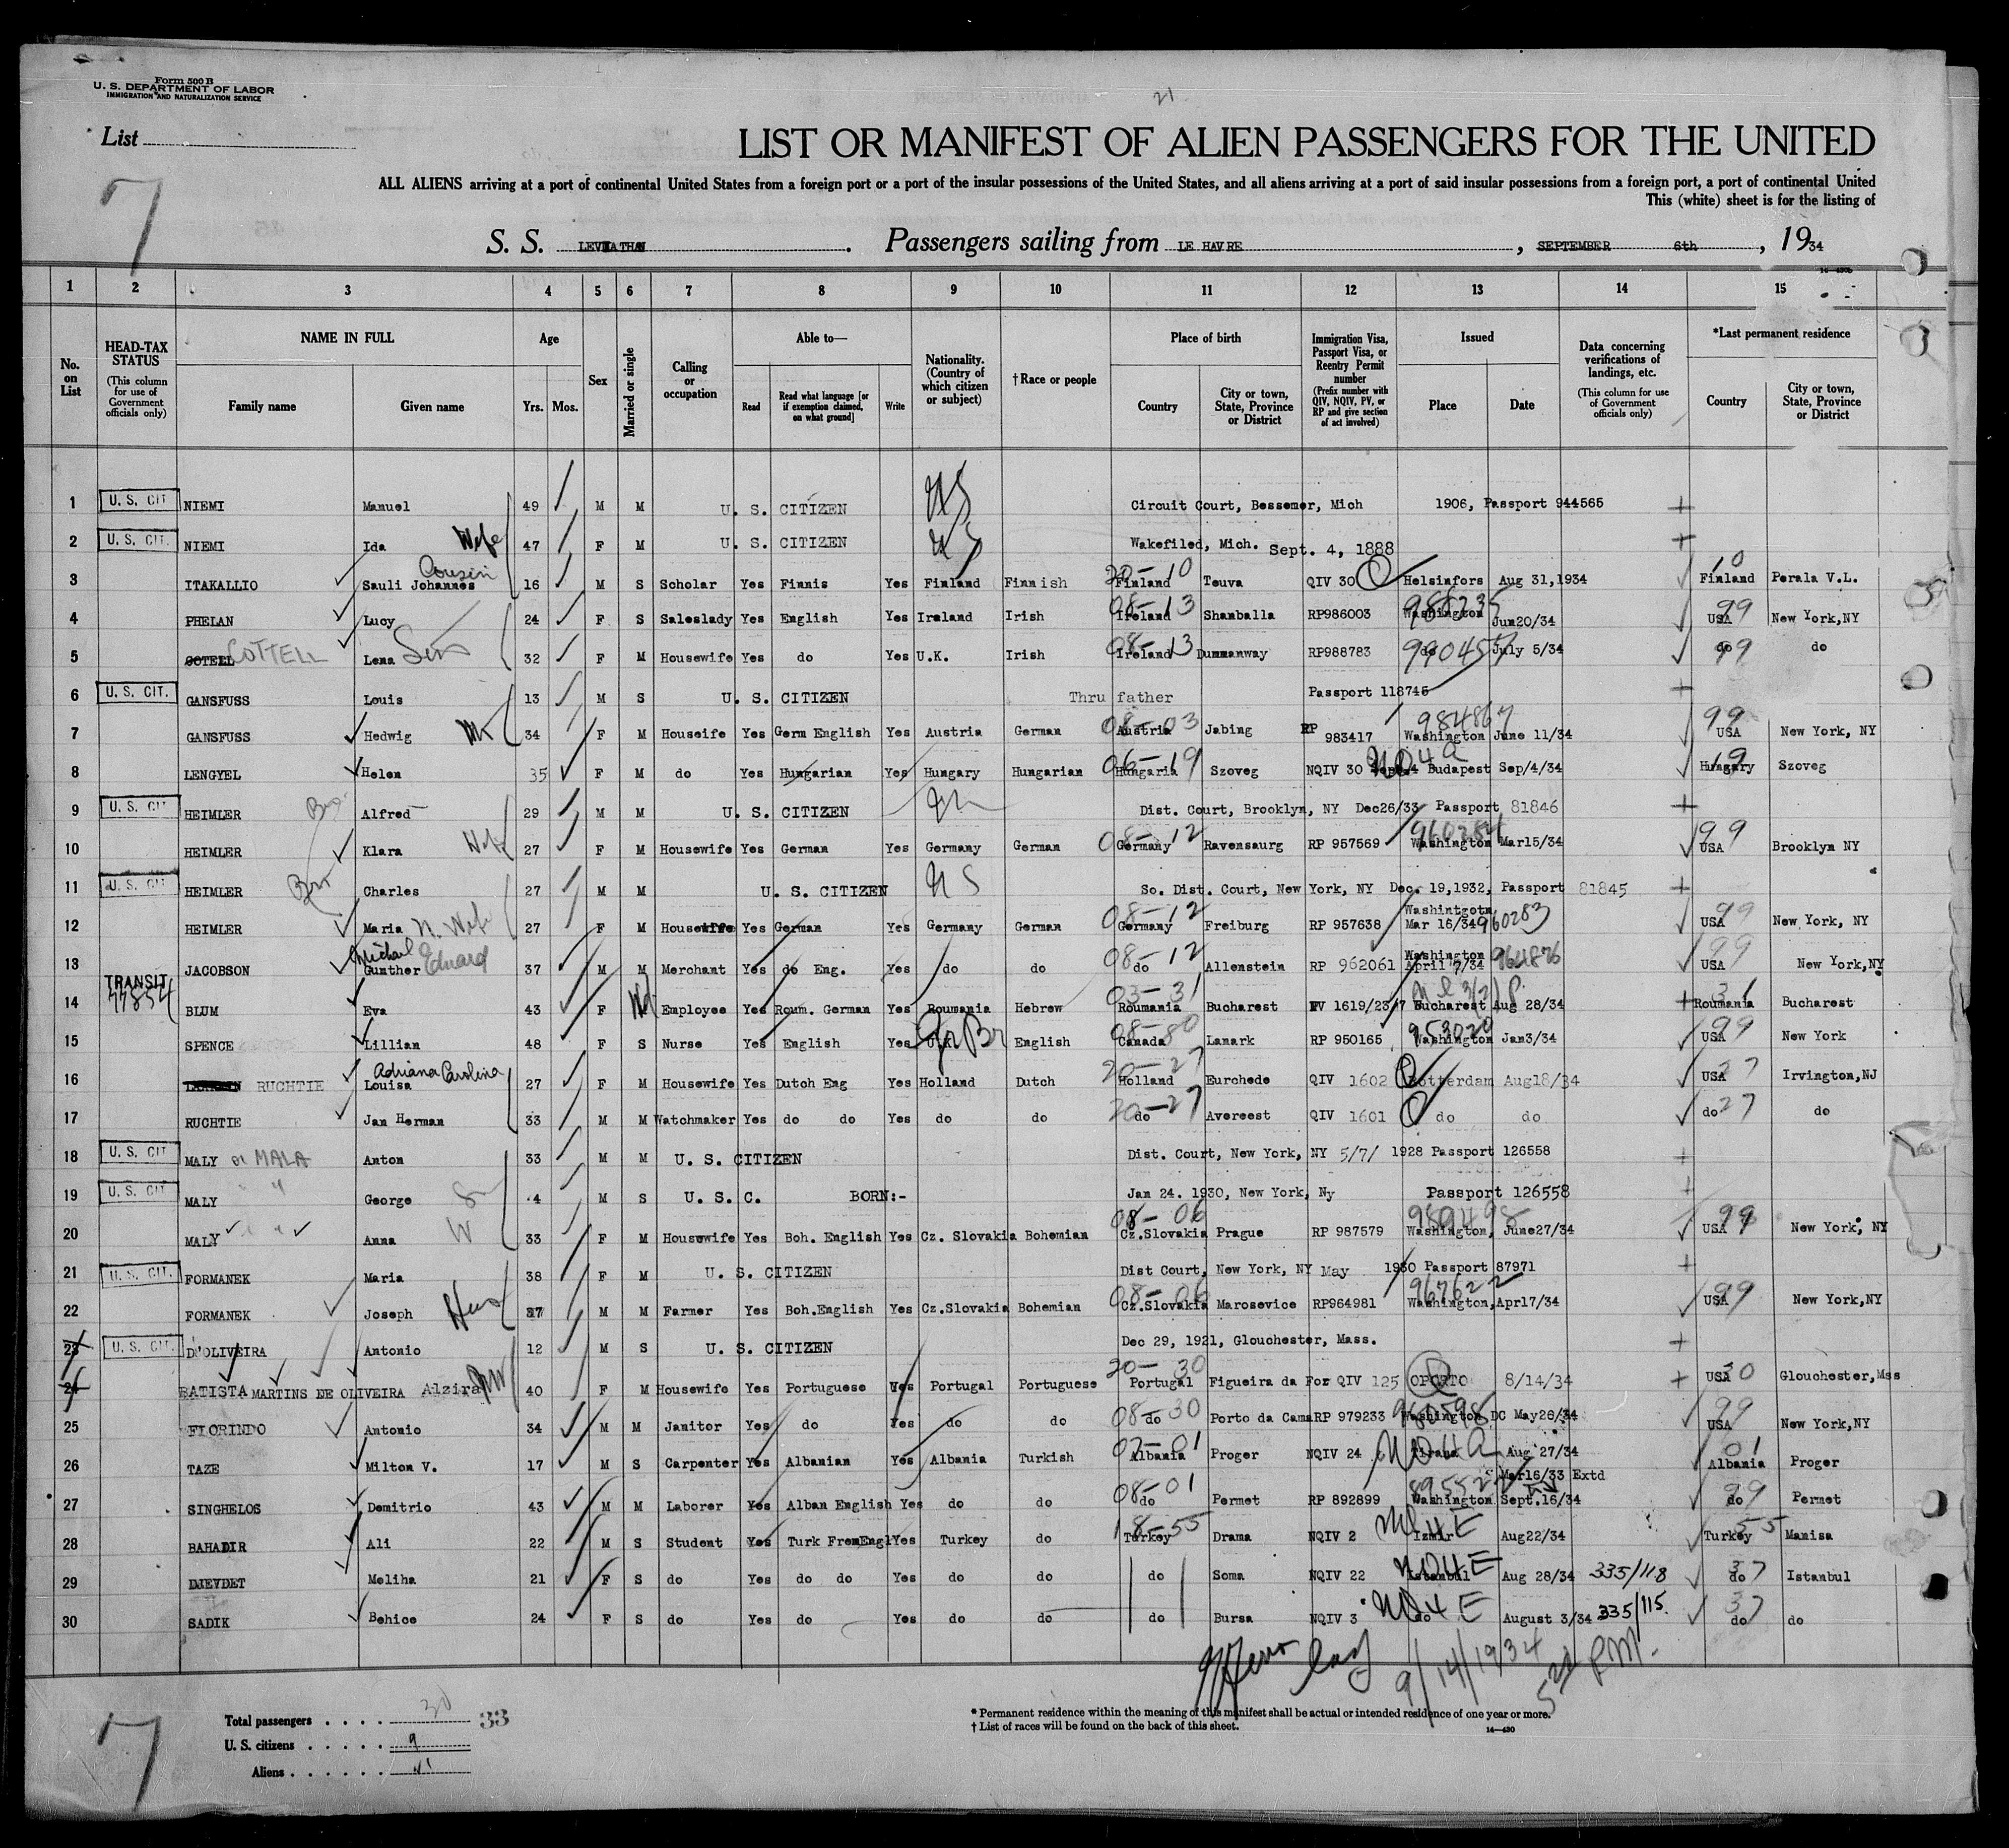 21
Form 500 B
U. S. DEPARTMENT OF LABOR
IMMIGRATION AND NATURALIZATION SERVICE
List
7
LIST OR MANIFEST OF ALIEN PASSENGERS FOR THE UNITED
ALL ALIENS arriving at a port of continental United States from a foreign port or a port of the insular possessions of the United States, and all aliens arriving at a port of said insular possessions from a foreign port, a port of continental United
This (white) sheet is for the listing of
S. S. LEVIATHAN. Passengers sailing from LE HAVRE, SEPTEMBER 6th, 1934
1 2 3 4 5 6 7 8 9 10 11 12 13 14 15
No. on List
HEAD-TAX STATUS (This column for use of Government officials only)
NAME IN FULL Family name Given name
Age Yrs. Mos.
Sex
Married or single
Calling or occupation
Able to— Read Read what language [or if exemption claimed, on what ground] Write
Nationality. (Country of which citizen or subject)
† Race or people
Place of birth Country City or town, State, Province or District
Immigration Visa, Passport Visa, or Reentry Permit number (Prefix number with QIV, NQIV, PV, or RP and give section of act involved)
Issued Place Date
Data concerning verifications of landings, etc. (This column for use of Government officials only)
*Last permanent residence Country City or town, State, Province or District
1 U. S. CIT NIEMI Manuel 49 M M U. S. CITIZEN US Circuit Court, Bessemer, Mich 1906, Passport 944565
2 U. S. CIT. NIEMI Ida Wife 47 F M U. S. CITIZEN US Wakefiled, Mich. Sept. 4, 1888
3 ITAKALLIO Sauli Johannes Cousin 16 M S Scholar Yes Finnis Yes Finland Finnish 20-10 Finland Teuva QIV 30 Helsinfors Aug 31,1934 10 Finland Perala V.L.
4 PHELAN Lucy 24 F S Saleslady Yes English Yes Ireland Irish 08-13 Ireland Shanballa RP986003 988235 Washington Jun20/34 99 USA New York,NY
5 COTELL COTTELL Lena 32 F M Housewife Yes do Yes U.K. Irish 08-13 Ireland Dunmanway RP988783 990457 do July 5/34 99 do do
6 U. S. CIT. GANSFUSS Louis 13 M S U. S. CITIZEN Thru father Passport 118745
7 GANSFUSS Hedwig 34 F M Houseife Yes Germ English Yes Austria German 08-03 Austria Jabing RP 983417 984867 Washington June 11/34 99 USA New York, NY
8 LENGYEL Helen 35 F M do Yes Hungarian Yes Hungary Hungarian 06-19 Hungaria Szoveg NQIV 30 Budapest Sep/4/34 19 Hungary Szoveg
9 U. S. CIT HEIMLER Bro Alfred 29 M M U. S. CITIZEN Dist. Court, Brooklyn, NY Dec26/33 Passport 81846
10 HEIMLER Klara 27 F M Housewife Yes German Yes Germany German 08-12 Germany Ravensaurg RP 957569 960284 Washington Mar15/34 99 USA Brooklyn NY
11 U. S. CIT HEIMLER Bro Charles 27 M M U. S. CITIZEN US So. Dist. Court, New York, NY Dec. 19,1932, Passport 81845
12 HEIMLER Maria Wife 27 F M Housewife Yes German Yes Germany German 08-12 Germany Freiburg RP 957638 Washintgotn Mar 16/34 960283 99 USA New York, NY
13 JACOBSON Michael Gunther Eduard 37 M M Merchant Yes do Eng. Yes do do 08-12 do Allenstein RP 962061 Washington April 7/34 964876 99 USA New York,NY
14 TRANSIT 77854 BLUM Eva 43 F Employee Yes Roum. German Yes Roumania Hebrew 03-31 Roumania Bucharest PV 1619/23/7 Bucharest Aug 28/34 31 Roumania Bucharest
15 SPENCE Lillian 48 F S Nurse Yes English Yes U.K. Gr Br English 08-80 Canada Lanark RP 950165 953020 Washington Jan3/34 99 USA New York
16 RUCHTIE Adriana Carolina Louisa 27 F M Housewife Yes Dutch Eng Yes Holland Dutch 20-27 Holland Eurchede QIV 1602 Rotterdam Aug18/34 27 USA Irvington,NJ
17 RUCHTIE Jan Herman 33 M M Watchmaker Yes do do Yes do do 20-27 do Avereest QIV 1601 do do do 27 do
18 U. S. CIT MALY or MALA Anton 33 M M U. S. CITIZEN Dist. Court, New York, NY 5/7/ 1928 Passport 126558
19 U. S. CIT MALY " George 4 M S U. S. C. BORN:- Jan 24. 1930, New York, Ny Passport 126558
20 MALY " Anna W 33 F M Housewife Yes Boh. English Yes Cz. Slovakia Bohemian 08-06 Cz.Slovakia Prague RP 987579 989498 Washington, June27/34 99 USA New York, NY
21 U. S. CIT. FORMANEK Maria 38 F M U. S. CITIZEN Dist Court, New York, NY May 1930 Passport 87971
22 FORMANEK Joseph Hus 37 M M Farmer Yes Boh.English Yes Cz.Slovakia Bohemian 08-06 Cz.Slovakia Marosevice RP964981 967622 Washington,Apr17/34 99 USA New York,NY
23 U. S. CIT. D'OLIVEIRA Antonio 12 M S U. S. CITIZEN Dec 29, 1921, Glouchester, Mass.
24 BATISTA MARTINS DE OLIVEIRA Alzira 40 F M Housewife Yes Portuguese Yes Portugal Portuguese 20-30 Portugal Figueira da Foz QIV 125 OPORTO 8/14/34 30 USA Glouchester,Mss
25 FLORINDO Antonio 34 M M Janitor Yes do Yes do do 08-30 do Porto da Cama RP 979233 980598 Washington DC May26/34 99 USA New York,NY
26 TAZE Milton V. 17 M S Carpenter Yes Albanian Yes Albania Turkish 07-01 Albania Proger NQIV 24 Tirana Aug 27/34 01 Albania Proger
27 SINGHELOS Demitrio 43 M M Laborer Yes Alban English Yes do do 08-01 do Permet RP 892899 Washington Mar16/33 Extd Sept.16/34 99 do Permet
28 BAHADIR Ali 22 M S Student Yes Turk FrenEngl Yes Turkey do 18-55 Turkey Drama NQIV 2 Izmir Aug22/34 55 Turkey Manisa
29 DJEVDET Meliha 21 F S do Yes do do Yes do do do Soma NQIV 22 Istanbul Aug 28/34 335/118 37 do Istanbul
30 SADIK Behice 24 F S do Yes do Yes do do do Bursa NQIV 3 do August 3/34 335/115. 37 do do
9/14/1934 PM.
7
Total passengers . . . . 30 33
U. S. citizens . . . . . 9
Aliens . . . . . . 21
* Permanent residence within the meaning of this manifest shall be actual or intended residence of one year or more.
† List of races will be found on the back of this sheet.
14—430